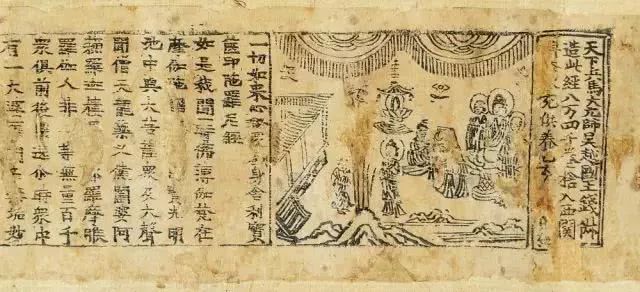 天下兵馬大元帥吳越國王錢俶
造此經八万四千卷捨入西關
充供養乙亥
一切如來心秘密全身舍利寶
篋印陀羅尼經
如是我聞一時佛薄伽梵在
摩伽陀光明
池中與大菩薩衆及大聲
聞僧天龍藥叉健闥婆阿
蘇羅迦樓羅摩睺
羅伽人非等無量百千
衆俱前後遶尒時衆中
有一大婆羅門名垢妙